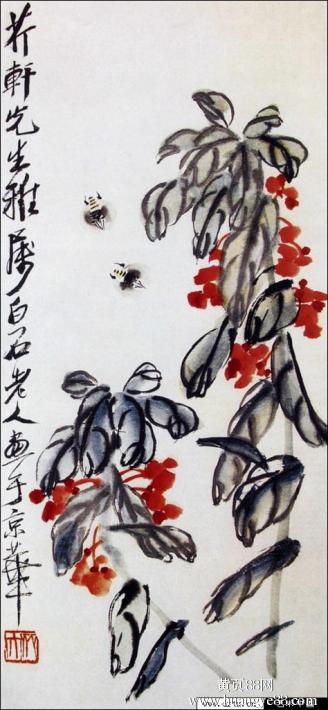 芥軒先生雅屬白石老人畫于京華
黄页88网
www.huangye88.com